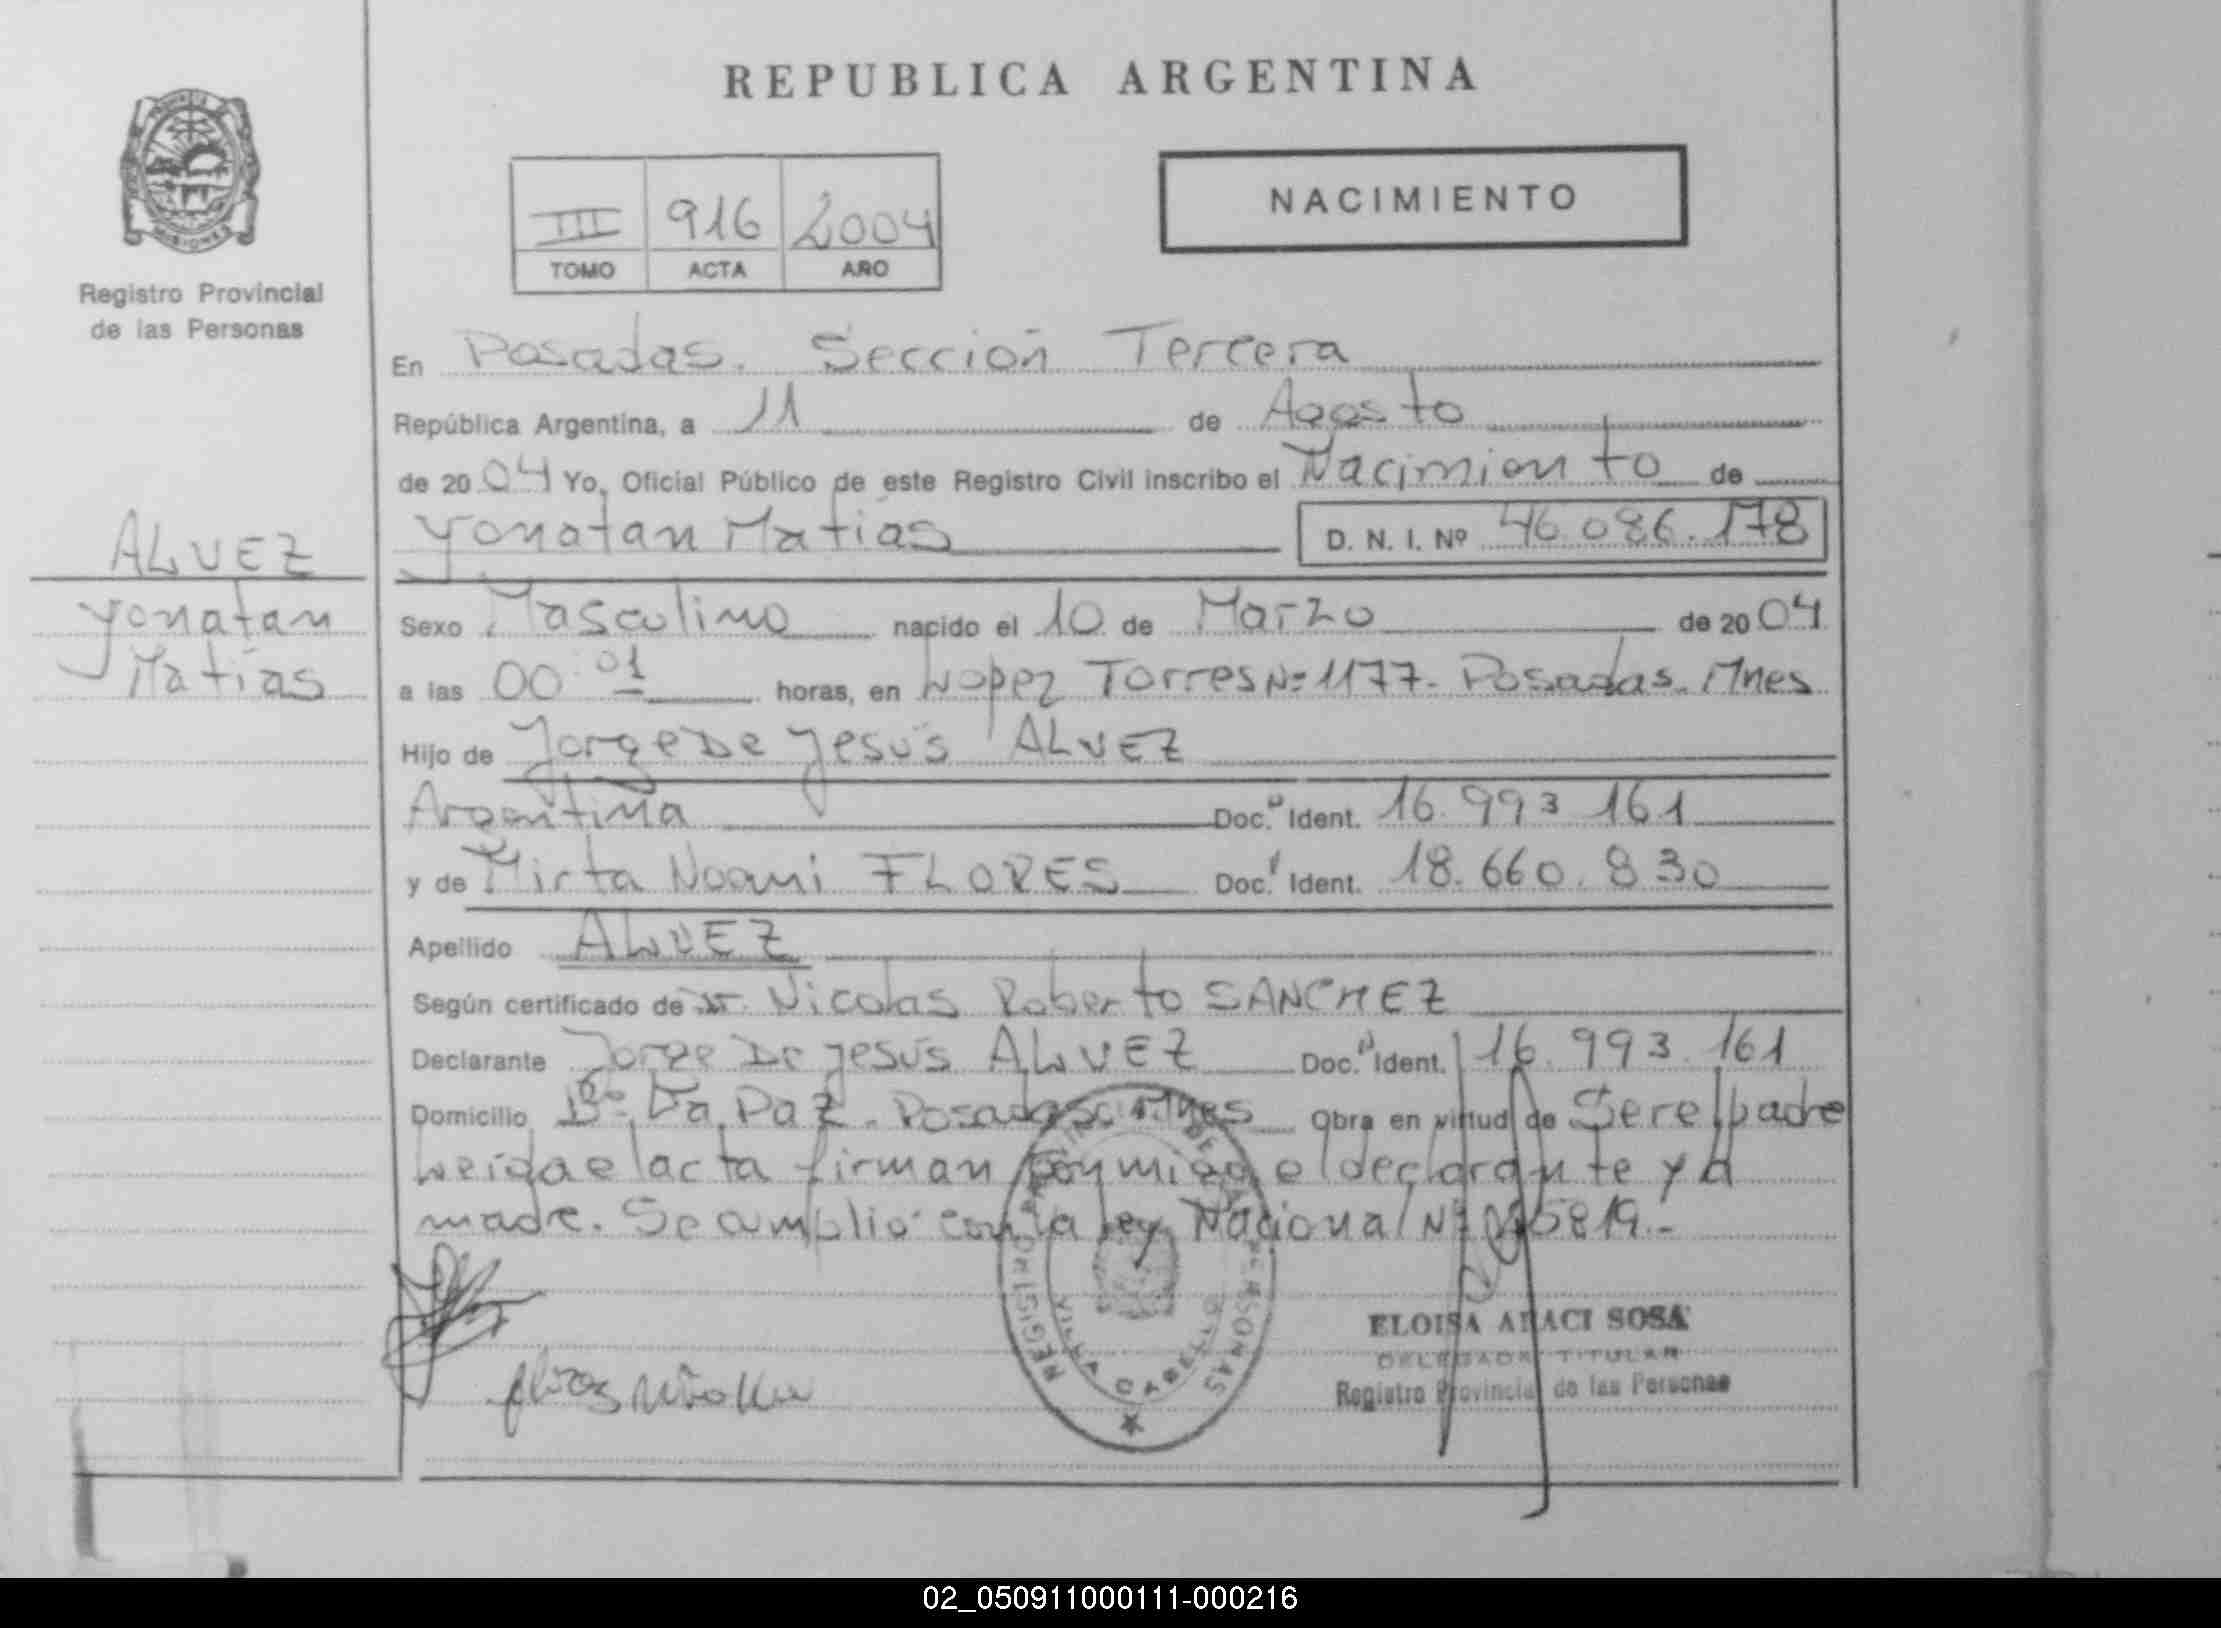 REPUBLICA ARGENTINA
PROVINCIA DE MISIONES
Registro Provincial
de las Personas
III 916 2004
TOMO ACTA AÑO
NACIMIENTO
En Posadas. Sección Tercera
República Argentina, a 11 de Agosto
de 2004 Yo, Oficial Público de este Registro Civil inscribo el Nacimiento de
Yonatan Matías D. N. I. Nº 46.086.178
ALVEZ
Yonatan
Matías
Sexo Masculino nacido el 10 de Marzo de 2004
a las 00:01 horas, en Lopez Torres Nº 1177. Posadas. Mnes
Hijo de Jorge De Jesús ALVEZ
Argentina Doc. Ident. 16.993.161
y de Mirta Noami FLORES Doc. Ident. 18.660.830
Apellido ALVEZ
Según certificado de Dr. Nicolas Roberto SANCHEZ
Declarante Jorge De Jesús ALVEZ Doc. Ident. 16.993.161
Domicilio Bº La Paz. Posadas. Mnes Obra en virtud de Ser el padre
Leida el acta firman conmigo el declarante y la
madre. Se amplio con la ley Nacional Nº 25819.-
REGISTRO PROVINCIAL DE LAS PERSONAS
VILLA CABELLO
ELOISA ARACI SOSA
DELEGADA TITULAR
Registro Provincial de las Personas
02_050911000111-000216